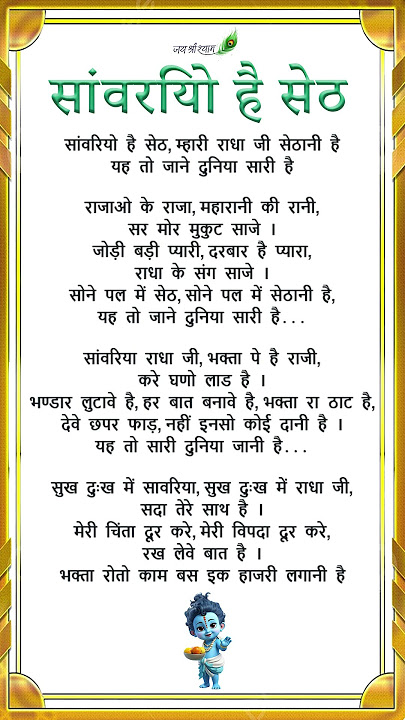 जय श्री श्याम
सांवरियो है सेठ
सांवरियो है सेठ, म्हारी राधा जी सेठानी है
यह तो जाने दुनिया सारी है
राजाओ के राजा, महारानी की रानी,
सर मोर मुकुट साजे ।
जोड़ी बड़ी प्यारी, दरबार है प्यारा,
राधा के संग साजे ।
सोने पल में सेठ, सोने पल में सेठानी है,
यह तो जाने दुनिया सारी है...
सांवरिया राधा जी, भक्ता पे है राजी,
करे घणो लाड है ।
भण्डार लुटावे है, हर बात बनावे है, भक्ता रा ठाट है,
देवे छपर फाड़, नहीं इनसो कोई दानी है ।
यह तो सारी दुनिया जानी है...
सुख दुःख में सावरिया, सुख दुःख में राधा जी,
सदा तेरे साथ है ।
मेरी चिंता दूर करे, मेरी विपदा दूर करे,
रख लेवे बात है ।
भक्ता रोतो काम बस इक हाजरी लगानी है